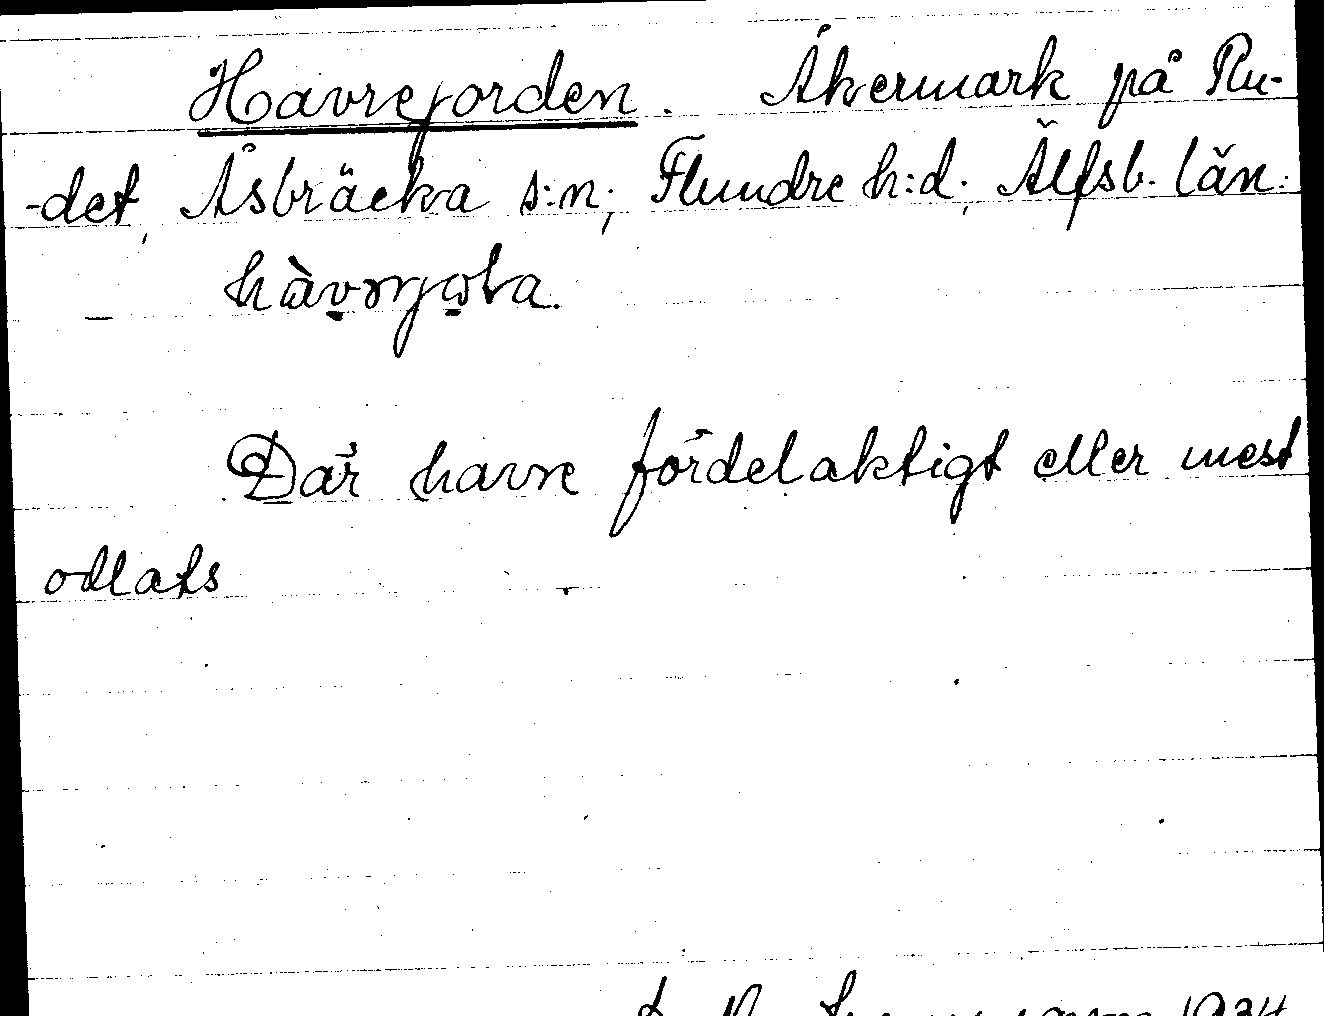 Havrejorden. Åkermark på Ru-
-det, Åsbräcka s:n; Flundre h:d; Älfsb. län.
– hàvrrjola.
Där havre fördelaktigt eller mest
odlats
1934